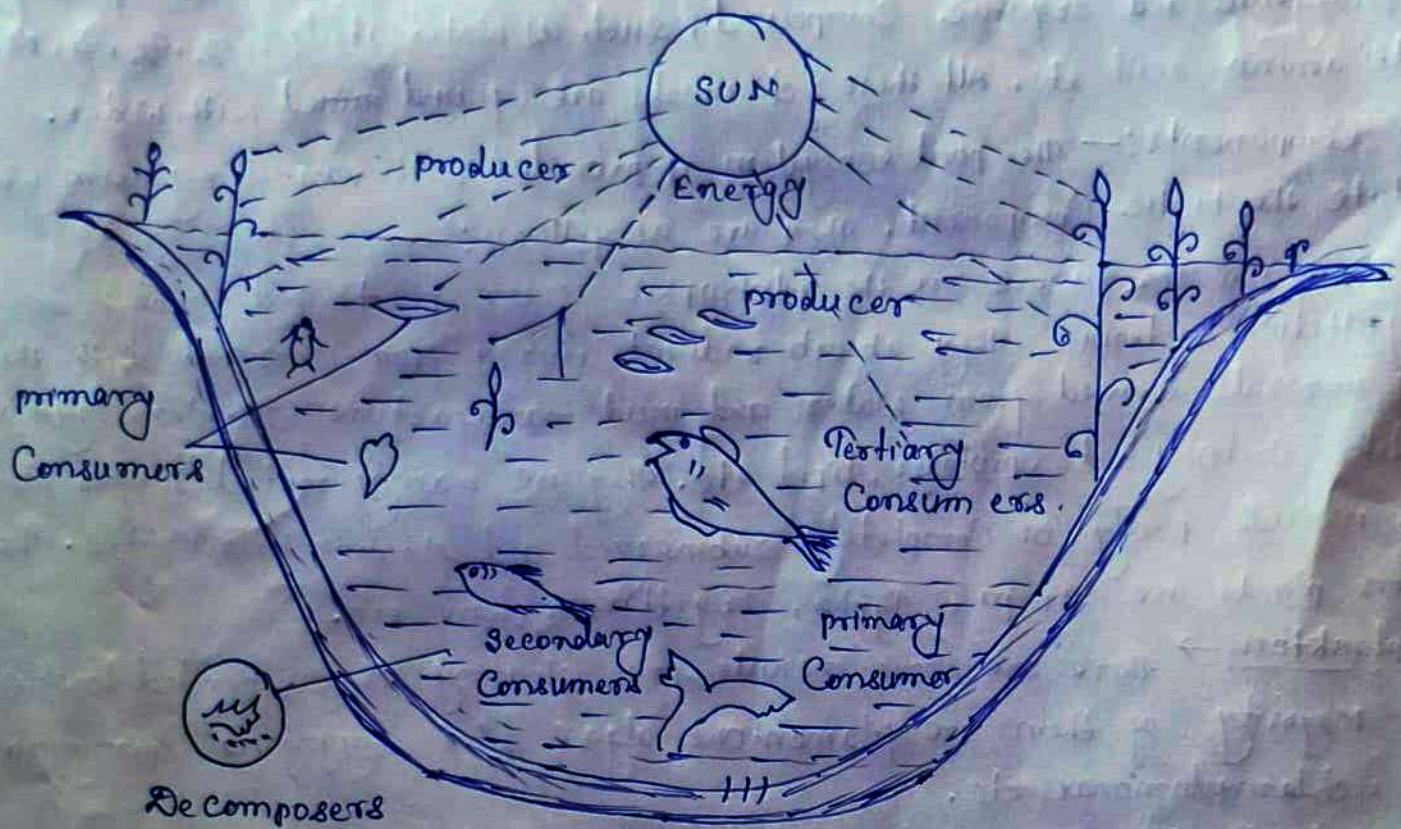 SUN
producer
Energy
producer
primary
Consumers
Tertiary
Consum ers.
secondary
Consumers
primary
Consumer
Decomposers